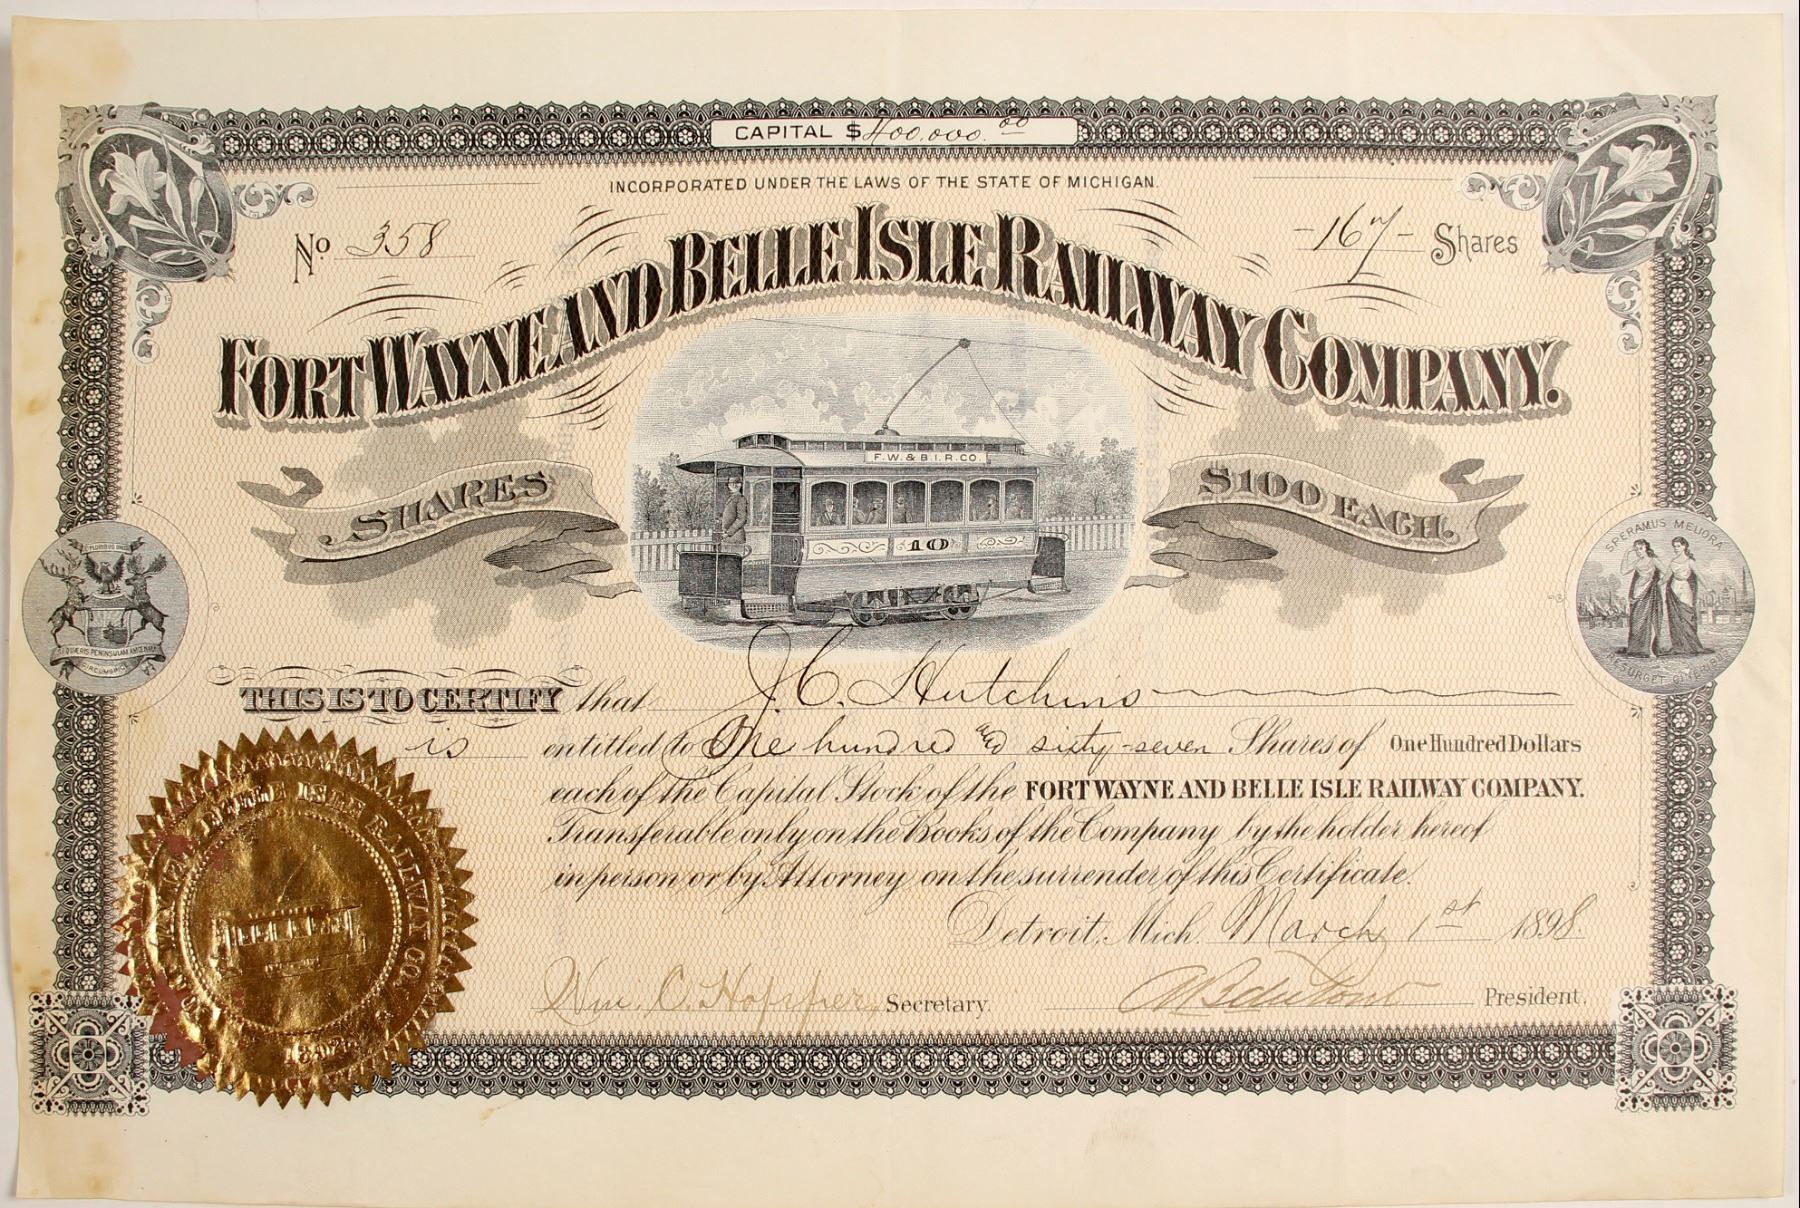 CAPITAL $400,000.00
INCORPORATED UNDER THE LAWS OF THE STATE OF MICHIGAN.
No 358
-167- Shares
FORT WAYNE AND BELLE ISLE RAILWAY COMPANY.
F.W. & B.I.R. CO.
SHARES
$100 EACH.
10
E PLURIBUS UNUM
SI QUÆRIS PENINSULAM AMŒNAM
CIRCUMSPICE
SPERAMUS MELIORA
RESURGET CINERIBUS
THIS IS TO CERTIFY that J. C. Hutchins
is entitled to One hundred and sixty-seven Shares of One Hundred Dollars
each of the Capital Stock of the FORT WAYNE AND BELLE ISLE RAILWAY COMPANY.
Transferable only on the Books of the Company by the holder hereof
in person or by Attorney on the surrender of this Certificate.
Detroit, Mich. March 1st 1898.
BELLE ISLE RAILWAY CO.
Wm. C. Hopper Secretary.
President.